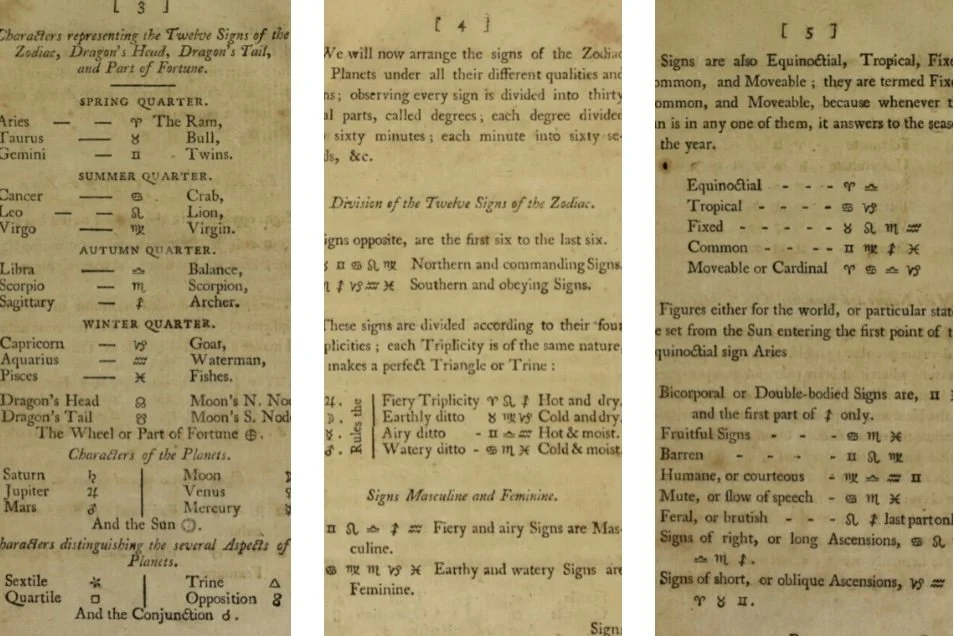 [ 3 ]
Characters representing the Twelve Signs of the
Zodiac, Dragon's Head, Dragon's Tail,
and Part of Fortune.
SPRING QUARTER.
Aries — — ♈ The Ram,
Taurus — ♉ Bull,
Gemini — ♊ Twins.
SUMMER QUARTER.
Cancer — ♋ Crab,
Leo — — ♌ Lion,
Virgo — ♍ Virgin.
AUTUMN QUARTER.
Libra — ♎ Balance,
Scorpio — ♏ Scorpion,
Sagittary — ♐ Archer.
WINTER QUARTER.
Capricorn — ♑ Goat,
Aquarius — ♒ Waterman,
Pisces — ♓ Fishes.
Dragon's Head ☊ Moon's N. No
Dragon's Tail ☋ Moon's S. Nod
The Wheel or Part of Fortune ⊕.
Characters of the Planets.
Saturn ♄ Moon
Jupiter ♃ Venus
Mars ♂ Mercury
And the Sun ☉.
haracters distinguishing the several Aspects of
Planets.
Sextile ⚹ Trine △
Quartile □ Opposition ☍
And the Conjunction ☌.
[ 4 ]
We will now arrange the signs of the Zodiac
Planets under all their different qualities and
ns; observing every sign is divided into thirty
al parts, called degrees; each degree divided
sixty minutes; each minute into sixty se-
ds, &c.
Division of the Twelve Signs of the Zodiac.
igns opposite, are the first six to the last six.
♉ ♊ ♋ ♌ ♍ Northern and commanding Signs.
♏ ♐ ♑ ♒ ♓ Southern and obeying Signs.
These signs are divided according to their four
plicities; each Triplicity is of the same nature,
makes a perfect Triangle or Trine:
♃. Rules the Fiery Triplicity ♈ ♌ ♐ Hot and dry.
☽. Earthly ditto ♉ ♍ ♑ Cold and dry.
☿. Airy ditto - ♊ ♎ ♒ Hot & moist.
♂. Watery ditto - ♋ ♏ ♓ Cold & moist.
Signs Masculine and Feminine.
♊ ♌ ♎ ♐ ♒ Fiery and airy Signs are Mas-
culine.
♋ ♍ ♏ ♑ ♓ Earthy and watery Signs are
Feminine.
Signs
[ 5 ]
Signs are also Equinoctial, Tropical, Fixe
ommon, and Moveable; they are termed Fixe
ommon, and Moveable, because whenever t
n is in any one of them, it answers to the seas
the year.
Equinoctial - - - ♈ ♎
Tropical - - - - ♋ ♑
Fixed - - - - - ♉ ♌ ♏ ♒
Common - - - - ♊ ♍ ♐ ♓
Moveable or Cardinal ♈ ♋ ♎ ♑
Figures either for the world, or particular stat
e set from the Sun entering the first point of t
quinoctial sign Aries
Bicorporal or Double-bodied Signs are, ♊
and the first part of ♐ only.
Fruitful Signs - - - ♋ ♏ ♓
Barren - - - - ♊ ♌ ♍
Humane, or courteous - ♍ ♎ ♒ ♊
Mute, or slow of speech - ♋ ♏ ♓
Feral, or brutish - - - ♌ ♐ last part onl
Signs of right, or long Ascensions, ♋ ♌
♎ ♏ ♐.
Signs of short, or oblique Ascensions, ♑ ♒
♈ ♉ ♊.